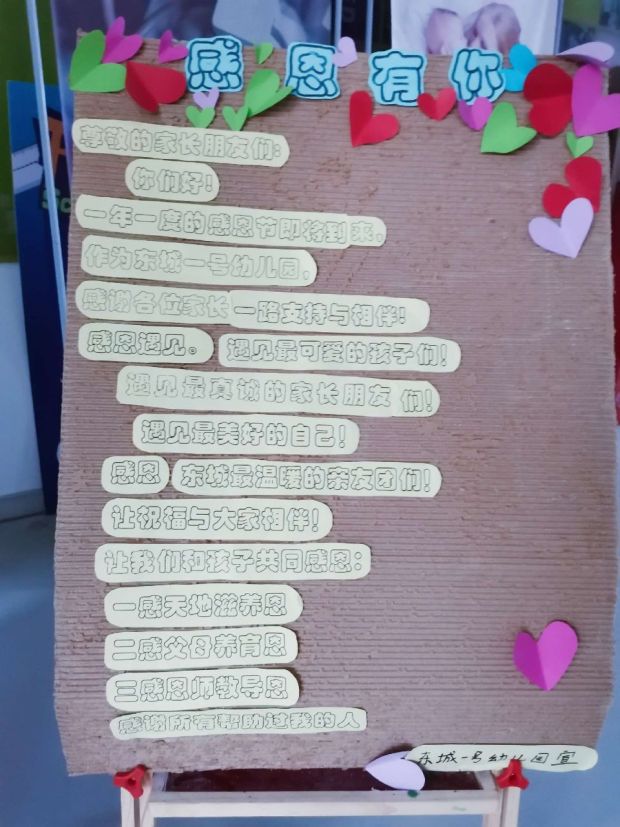 感恩有你
尊敬的家长朋友们:
你们好!
一年一度的感恩节即将到来,
作为东城一号幼儿园,
感谢各位家长一路支持与相伴!
感恩遇见。遇见最可爱的孩子们!
遇见最真诚的家长朋友们!
遇见最美好的自己!
感恩东城最温暖的亲友团们!
让祝福与大家相伴!
让我们和孩子共同感恩:
一感天地滋养恩
二感父母养育恩
三感恩师教导恩
感谢所有帮助过我的人
东城一号幼儿园宣